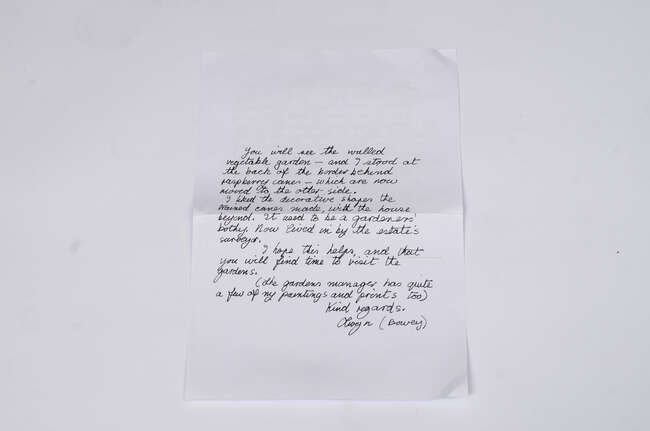 You will see the walled
vegetable garden — and I stood at
the back of the border behind
raspberry canes — which are now
moved to the other side.
I liked the decorative shapes the
trained canes made, with the house
beyond. It used to be a gardeners'
bothy. Now lived in by the estate's
surveyor.
I hope this helps, and that
you will find time to visit the
gardens.
(the gardens manager has quite
a few of my paintings and prints too)
Kind regards.
Olwyn (Bowey)